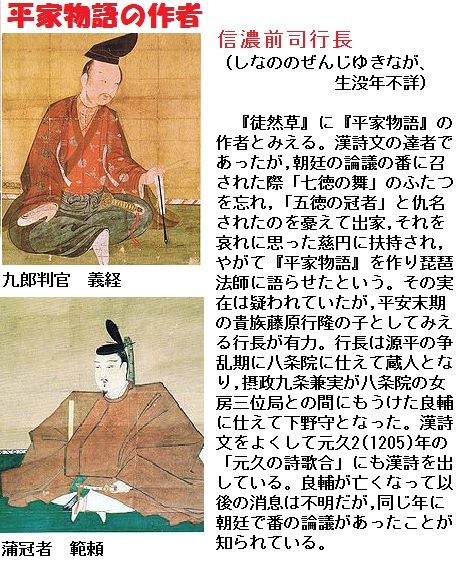 平家物語の作者
信濃前司行長
(しなののぜんじゆきなが、
生没年不詳)
『徒然草』に『平家物語』の
作者とみえる。漢詩文の達者で
あったが,朝廷の論議の番に召
された際「七徳の舞」のふたつ
を忘れ,「五徳の冠者」と仇名
されたのを憂えて出家,それを
哀れに思った慈円に扶持され,
やがて『平家物語』を作り琵琶
法師に語らせたという。その実
在は疑われていたが,平安末期
の貴族藤原行隆の子としてみえ
る行長が有力。行長は源平の争
乱期に八条院に仕えて蔵人とな
り,摂政九条兼実が八条院の女
房三位局との間にもうけた良輔
に仕えて下野守となった。漢詩
文をよくして元久2(1205)年の
「元久の詩歌合」にも漢詩を出
している。良輔が亡くなって以
後の消息は不明だが,同じ年に
朝廷で番の論議があったことが
知られている。
九郎判官 義経
蒲冠者 範頼